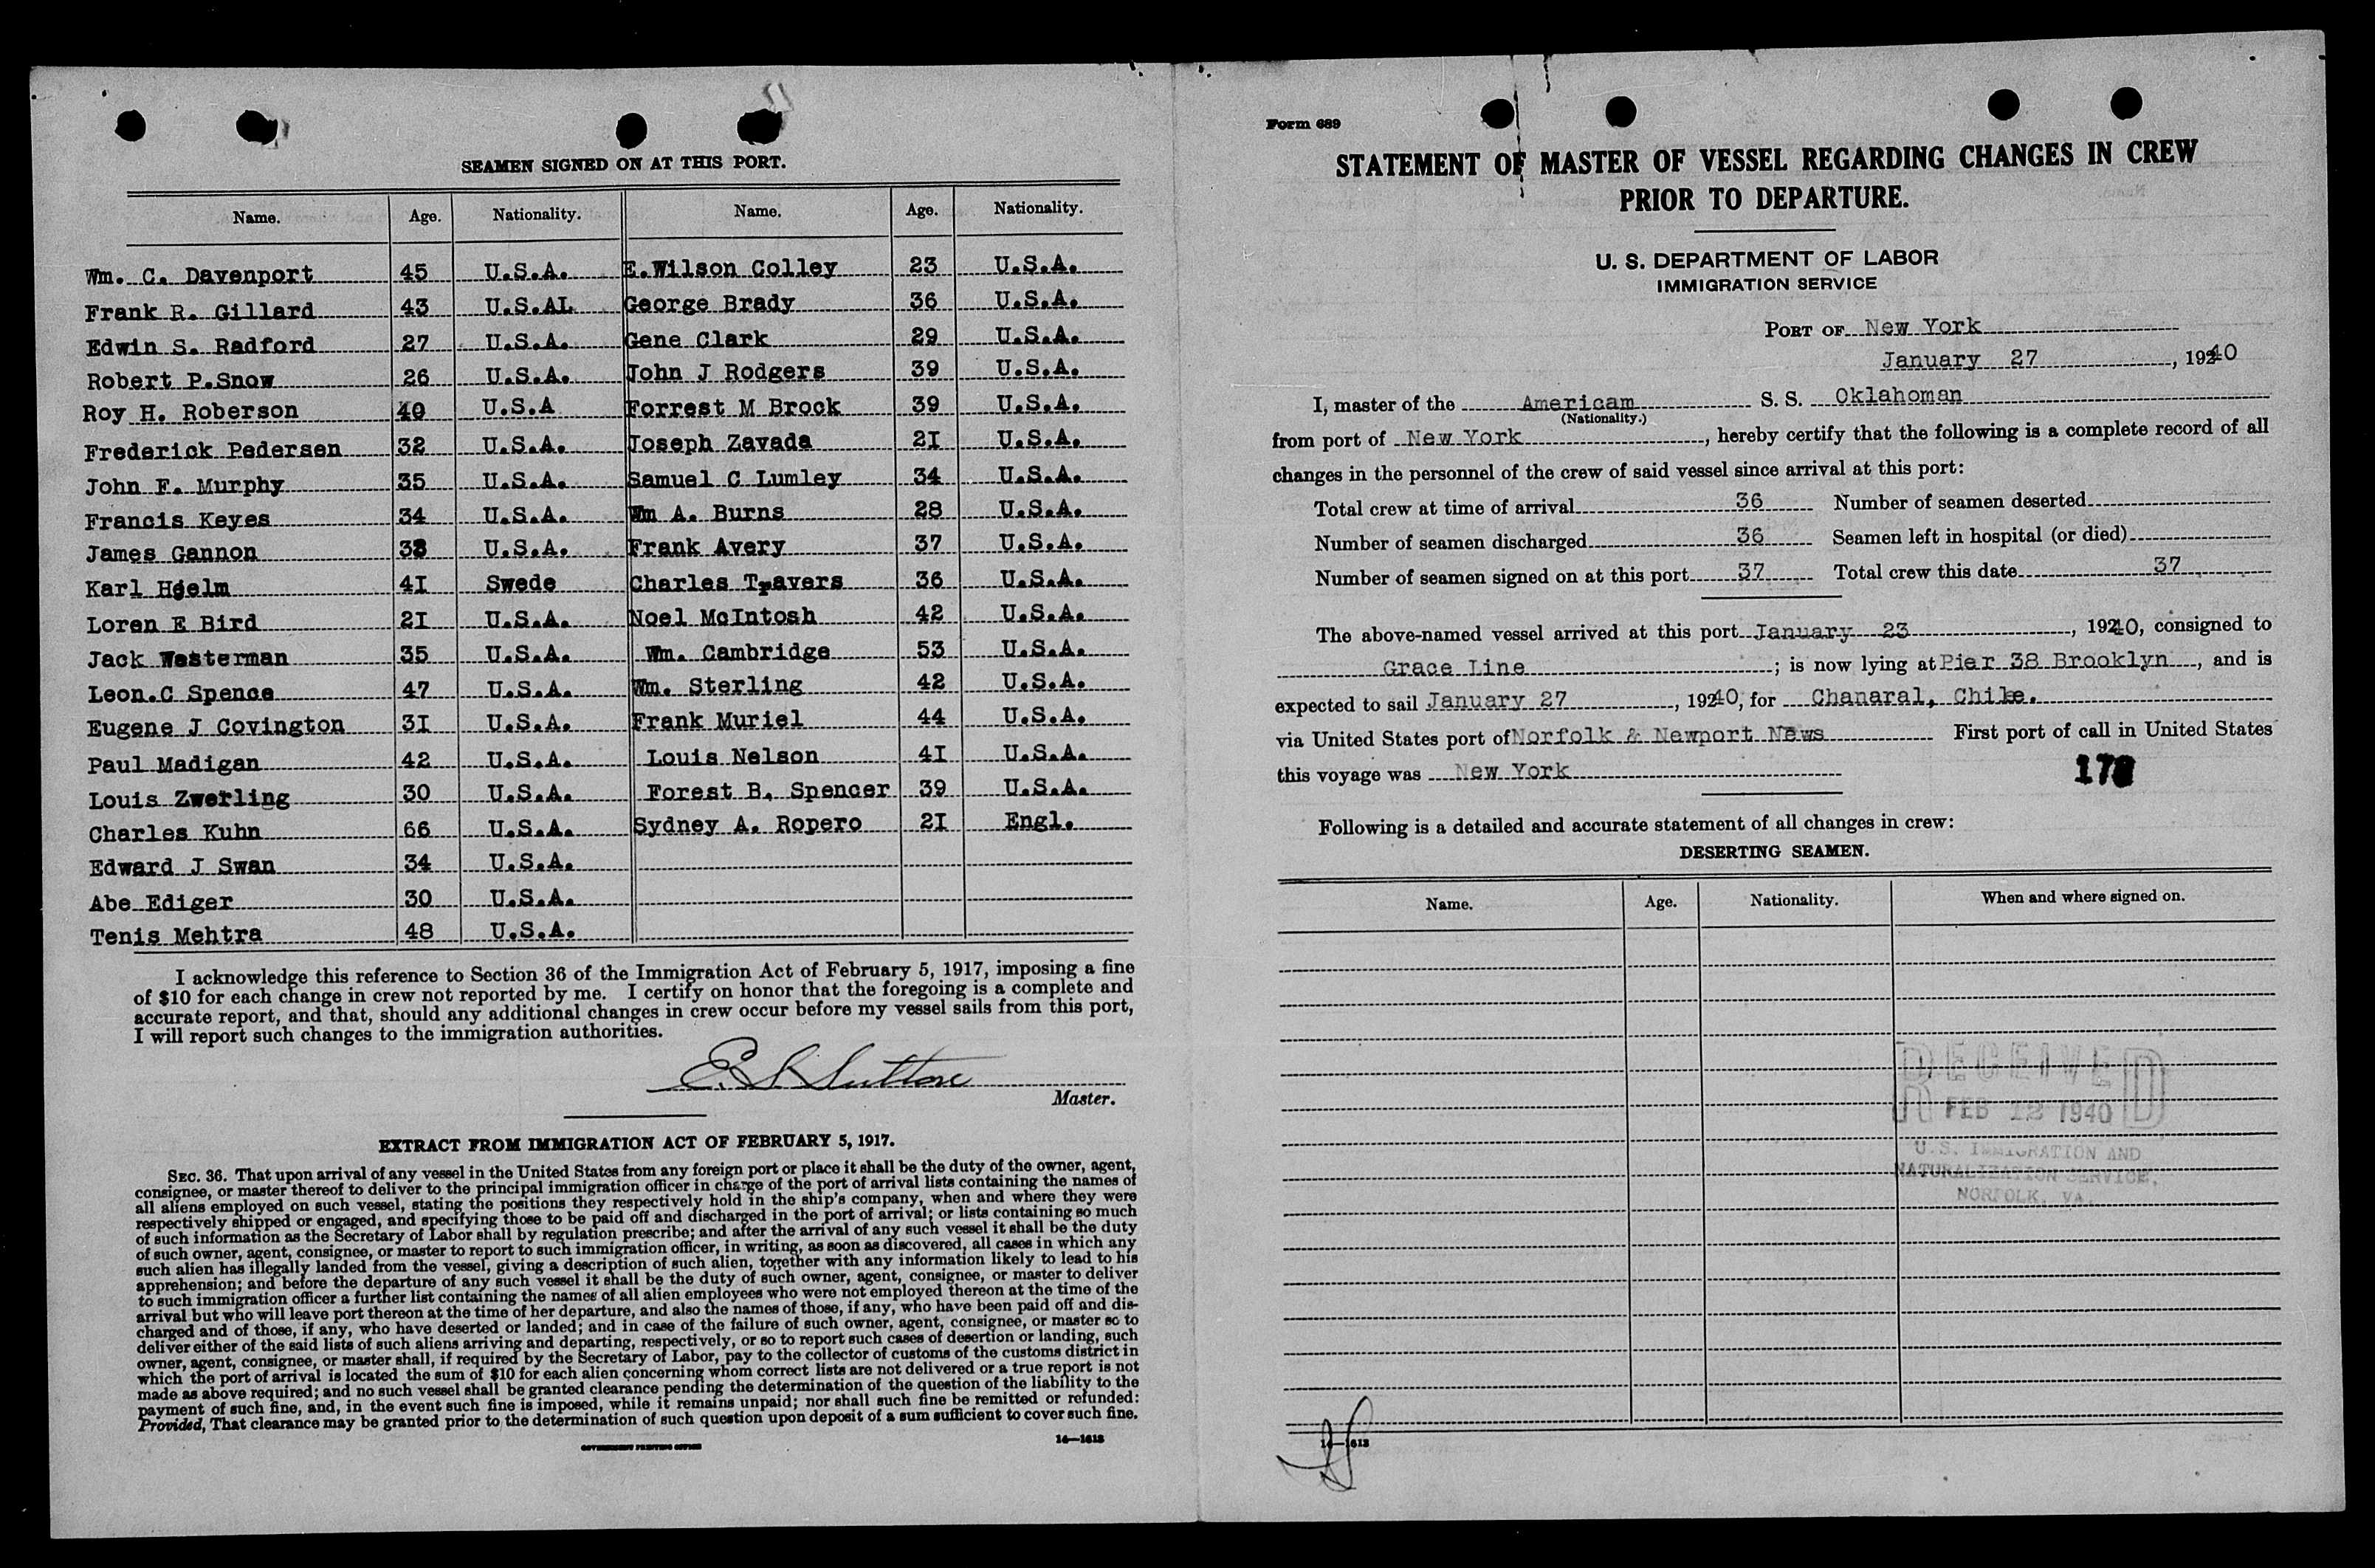 SEAMEN SIGNED ON AT THIS PORT.
Name. Age. Nationality. Name. Age. Nationality.
Wm. C. Davenport 45 U.S.A. E.Wilson Colley 23 U.S.A.
Frank R. Gillard 43 U.S.AL George Brady 36 U.S.A.
Edwin S. Radford 27 U.S.A. Gene Clark 29 U.S.A.
Robert P.Snow 26 U.S.A. John J Rodgers 39 U.S.A.
Roy H. Roberson 40 U.S.A Forrest M Brock 39 U.S.A.
Frederick Pedersen 32 U.S.A. Joseph Zavada 21 U.S.A.
John F. Murphy 35 U.S.A. Samuel C Lumley 34 U.S.A.
Francis Keyes 34 U.S.A. Wm A. Burns 28 U.S.A.
James Gannon U.S.A. Frank Avery 37 U.S.A.
Karl 41 Swede Charles Travers 36 U.S.A.
Loren E Bird 21 U.S.A. Noel McIntosh 42 U.S.A.
Jack Westerman 35 U.S.A. Wm. Cambridge 53 U.S.A.
Leon.C Spence 47 U.S.A. Wm. Sterling 42 U.S.A.
Eugene J Covington 31 U.S.A. Frank Muriel 44 U.S.A.
Paul Madigan 42 U.S.A. Louis Nelson 41 U.S.A.
Louis Zwerling 30 U.S.A. Forest B. Spencer 39 U.S.A.
Charles Kuhn 66 U.S.A. Sydney A. Ropero 21 Engl.
Edward J Swan 34 U.S.A.
Abe Ediger 30 U.S.A.
Tenis Mehtra 48 U.S.A.
I acknowledge this reference to Section 36 of the Immigration Act of February 5, 1917, imposing a fine
of $10 for each change in crew not reported by me. I certify on honor that the foregoing is a complete and
accurate report, and that, should any additional changes in crew occur before my vessel sails from this port,
I will report such changes to the immigration authorities.
E. S. Sutton
Master.
EXTRACT FROM IMMIGRATION ACT OF FEBRUARY 5, 1917.
SEC. 36. That upon arrival of any vessel in the United States from any foreign port or place it shall be the duty of the owner, agent,
consignee, or master thereof to deliver to the principal immigration officer in charge of the port of arrival lists containing the names of
all aliens employed on such vessel, stating the positions they respectively hold in the ship's company, when and where they were
respectively shipped or engaged, and specifying those to be paid off and discharged in the port of arrival; or lists containing so much
of such information as the Secretary of Labor shall by regulation prescribe; and after the arrival of any such vessel it shall be the duty
of such owner, agent, consignee, or master to report to such immigration officer, in writing, as soon as discovered, all cases in which any
such alien has illegally landed from the vessel, giving a description of such alien, together with any information likely to lead to his
apprehension; and before the departure of any such vessel it shall be the duty of such owner, agent, consignee, or master to deliver
to such immigration officer a further list containing the names of all alien employees who were not employed thereon at the time of the
arrival but who will leave port thereon at the time of her departure, and also the names of those, if any, who have been paid off and dis-
charged and of those, if any, who have deserted or landed; and in case of the failure of such owner, agent, consignee, or master so to
deliver either of the said lists of such aliens arriving and departing, respectively, or so to report such cases of desertion or landing, such
owner, agent, consignee, or master shall, if required by the Secretary of Labor, pay to the collector of customs of the customs district in
which the port of arrival is located the sum of $10 for each alien concerning whom correct lists are not delivered or a true report is not
made as above required; and no such vessel shall be granted clearance pending the determination of the question of the liability to the
payment of such fine, and, in the event such fine is imposed, while it remains unpaid; nor shall such fine be remitted or refunded:
Provided, That clearance may be granted prior to the determination of such question upon deposit of a sum sufficient to cover such fine.
GOVERNMENT PRINTING OFFICE 14—1613
Form 689
STATEMENT OF MASTER OF VESSEL REGARDING CHANGES IN CREW
PRIOR TO DEPARTURE.
U. S. DEPARTMENT OF LABOR
IMMIGRATION SERVICE
PORT OF New York
January 27, 1940
I, master of the Americam S. S. Oklahoman
(Nationality.)
from port of New York, hereby certify that the following is a complete record of all
changes in the personnel of the crew of said vessel since arrival at this port:
Total crew at time of arrival 36 Number of seamen deserted
Number of seamen discharged 36 Seamen left in hospital (or died)
Number of seamen signed on at this port 37 Total crew this date 37
The above-named vessel arrived at this port January 23, 1940, consigned to
Grace Line; is now lying at Pier 38 Brooklyn, and is
expected to sail January 27, 1940, for Chanaral, Chile.
via United States port of Norfolk & Newport News First port of call in United States
this voyage was New York
178
Following is a detailed and accurate statement of all changes in crew:
DESERTING SEAMEN.
Name. Age. Nationality. When and where signed on.
RECEIVED
FEB 12 1940
U.S. IMMIGRATION AND
NATURALIZATION SERVICE,
NORFOLK, VA.
14—1613